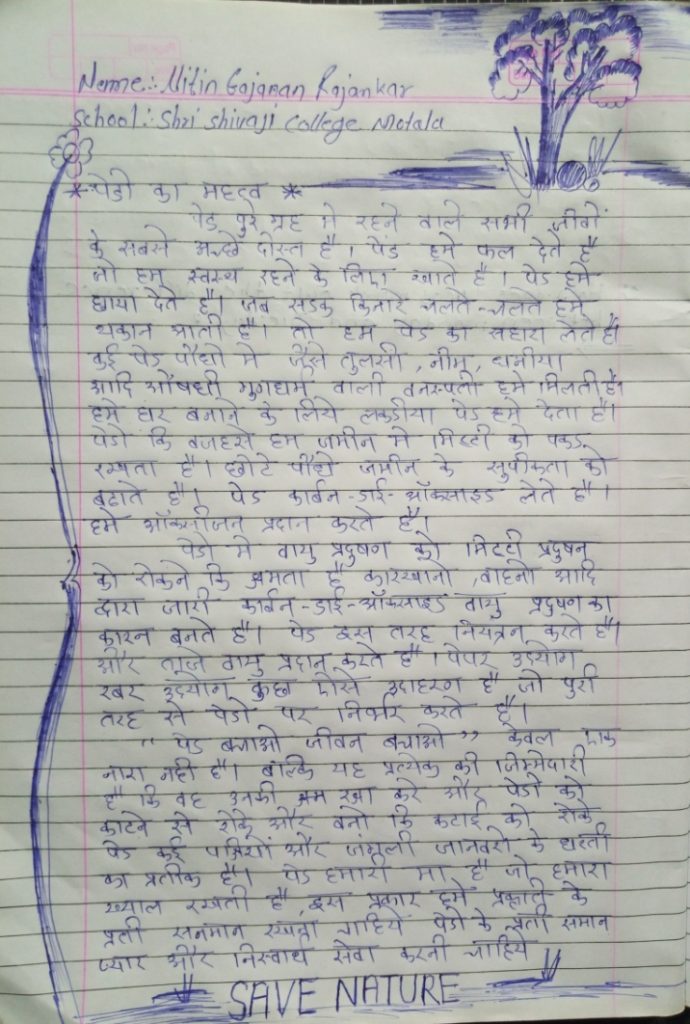 Name:- Nitin Gajanan Rajankar
School:- Shri Shivaji College Motala
* पेडो का महत्व *
पेड पुरे ग्रह मे रहने वाले सभी जीवों
के सबसे अच्छे दोस्त है। पेड हमे फल देते है
जो हम स्वस्थ रहने के लिए खाते है। पेड हमे
छाया देते है। जब सडक किनारे चलते-चलते हमे
थकान आती है। तो हम पेड का सहारा लेते है।
कुई पेड पौधो मे जैसे तुलसी, नीम, धनीया
आदि औषधी गुणधर्म वाली वनस्पती हमे मिलती है।
हमे घर बनाने के लिये लकडीया पेड हमे देता है।
पेडो कि वजहसे हम जमीन मे मिटटी को पकड
रखता है। छोटे पौधे जमीन के सुपीकता को
बढाते है। पेड कार्बन-डाई-ऑक्साइड लेते है।
हमे ऑक्सीजन प्रदान करते है।
पेडो मे वायु प्रदुषण को मिटटी प्रदुषन
को रोकने कि क्षमता है कारखानो, वाहनो आदि
द्वारा जारी कार्बन-डाई-ऑक्साइड वायु प्रदुषण का
कारन बनते है। पेड इस तरह नियंत्रन करते है।
और ताजे वायु प्रदान करते है। पेपर उद्योग
रबर उद्योग कुछ ऐसे उदाहरण है जो पुरी
तरह से पेडो पर निर्भर करते है।
" पेड बचाओ जीवन बचाओ " केवल एक
नारा नही है। बल्कि यह प्रत्येक की जिम्मेदारी
है कि वह उनकी रक्षा करे और पेडो को
काटने से रोके और वनो कि कटाई को रोके
पेड कई पक्षियों और जंगली जानवरो के धरती
का प्रतीक है। पेड हमारी मा है जो हमारा
ख्याल रखती है, इस प्रकार हमे प्रकृती के
प्रती सनमान रखना चाहिये पेडो के प्रती समान
प्यार और निस्वार्थ सेवा करनी चाहिये
SAVE NATURE